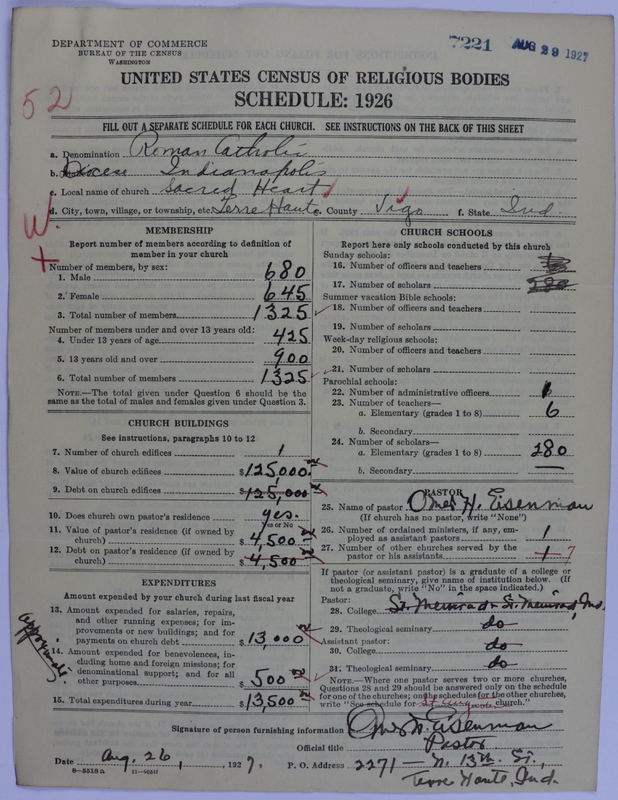 DEPARTMENT OF COMMERCE
BUREAU OF THE CENSUS
WASHINGTON
7221 AUG 29 1927
UNITED STATES CENSUS OF RELIGIOUS BODIES
SCHEDULE: 1926
52
FILL OUT A SEPARATE SCHEDULE FOR EACH CHURCH. SEE INSTRUCTIONS ON THE BACK OF THIS SHEET
a. Denomination Roman Catholic
b. Diocese Indianapolis
c. Local name of church Sacred Heart
d. City, town, village, or township, etc. Terre Haute e. County Vigo f. State Ind.
W.
MEMBERSHIP
Report number of members according to definition of
member in your church
Number of members, by sex:
1. Male 680
2. Female 645
3. Total number of members 1325
Number of members under and over 13 years old:
4. Under 13 years of age 425
5. 13 years old and over 900
6. Total number of members 1325
NOTE.—The total given under Question 6 should be
the same as the total of males and females given under Question 3.
CHURCH BUILDINGS
See instructions, paragraphs 10 to 12
7. Number of church edifices 1
8. Value of church edifices $125,000
9. Debt on church edifices $125,000
10. Does church own pastor's residence yes.
Yes or No
11. Value of pastor's residence (if owned by
church) $4,500
12. Debt on pastor's residence (if owned by
church) $4,500
EXPENDITURES
Amount expended by your church during last fiscal year
13. Amount expended for salaries, repairs,
and other running expenses; for im-
provements or new buildings; and for
payments on church debt $13,000
14. Amount expended for benevolences, in-
cluding home and foreign missions; for
denominational support; and for all
other purposes $500
15. Total expenditures during year $13,500
CHURCH SCHOOLS
Report here only schools conducted by this church
Sunday schools:
16. Number of officers and teachers
17. Number of scholars 280
Summer vacation Bible schools:
18. Number of officers and teachers
19. Number of scholars
Week-day religious schools:
20. Number of officers and teachers
21. Number of scholars
Parochial schools:
22. Number of administrative officers 1
23. Number of teachers—
a. Elementary (grades 1 to 8) 6
b. Secondary
24. Number of scholars—
a. Elementary (grades 1 to 8) 280
b. Secondary —
PASTOR
25. Name of pastor Omer H. Eisenman
(If church has no pastor, write "None")
26. Number of ordained ministers, if any, em-
ployed as assistant pastors 1
27. Number of other churches served by the
pastor or his assistants 1 7
If pastor (or assistant pastor) is a graduate of a college or
theological seminary, give name of institution below. (If
not a graduate, write "No" in the space indicated.)
Pastor:
28. College St. Meinrad - St. Meinrad, Ind.
29. Theological seminary do
Assistant pastor:
30. College do
31. Theological seminary do
NOTE.—Where one pastor serves two or more churches,
Questions 28 and 29 should be answered only on the schedule
for one of the churches; on the schedules for the other churches,
write "See schedule for church."
Signature of person furnishing information Omer H. Eisenman
Official title Pastor
Date Aug. 26, 1927. P. O. Address 2271 — N. 13th St.,
Terre Haute, Ind.
8-5518a 11-9054f